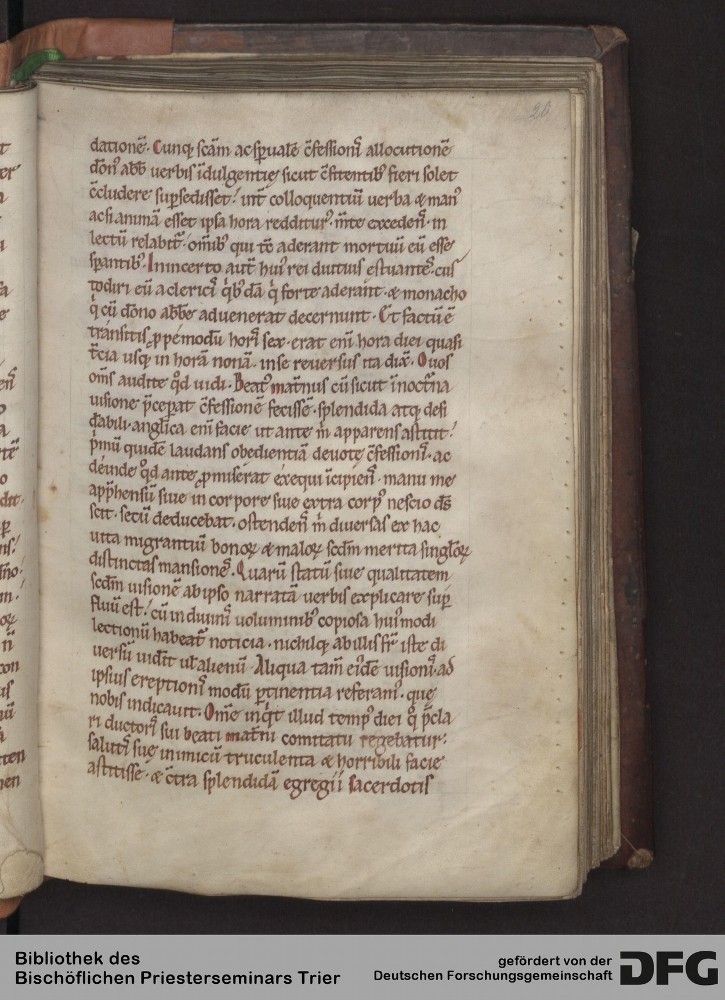 20
dationē. Cunq; scām ac sp̄ualē c̄fessionis allocutionē
dōn' abb' uerbis īdulgentie sicut c̄fitentib' fieri solet
c̄cludere sup̄sedisset: int̄ colloquentiū uerba & man'
ac si animā esset ipsa hora redditur', m̄te exceden̄s in
lectū relabit̄. om̄ib' qui tē aderant mortuū eū esse
sp̄antib'. In incerto aut̄ hui' rei diutius estuantes, cus
todiri eū a clericis q'b'dā q̇ forte aderant. & monacho
q̇ cū dōno abbe aduenerat decernunt. Et factū ē
transitis p̱pemodū horis sex. erat enī hora diei quasi
t̄cia usq; in horā nonā. in se reuersus ita dix̄. O uos
om̄s audite qd̄ uidi. Beat' mat̄nus cū sicut ī noct̄na
uisione p̄cep̄at c̄fessionē fecissē. splendida atq; desi
d̄abili. anglica enī facie ut ante m̄ apparens astitit:
p̄mū quidē laudans obedientiā deuote c̄fessionis. ac
deinde qd̄ ante p̱miserat exequi īcipiens. manu me
app̄hensū siue in corpore siue extra corp' nescio dš
scit. secū deducebat. ostendens m̄ diuersas ex hac
uita migrantiū bonoꝝ & maloꝝ scdm̄ merita singloꝝ
distinctas mansiones. Quarū statū siue qualitatem
scdm̄ uisionē ab ipso narratā uerbis explicare sup̄
fluū est: cū in diuinis uoluminib' copiosa hui'modi
lectionū habeat̄ noticia. nichilq; ab illis fr̄ iste di
uersū uidit uł alienū. Aliqua tam̄ eidē uisionis ad
ipsius ereptionis modū p̱tinentia referam'. que
nobis indicauit. Om̄e inq̇t illud temp' diei q̊ p̄cla
ri ductoris sui beati mat̄ni comitatu regebatur:
salutis sue inimicū truculenta & horribili facie
astitisse. & c̄tra splendidā egregii sacerdotis
Bibliothek des
Bischöflichen Priesterseminars Trier
gefördert von der
Deutschen Forschungsgemeinschaft
DFG